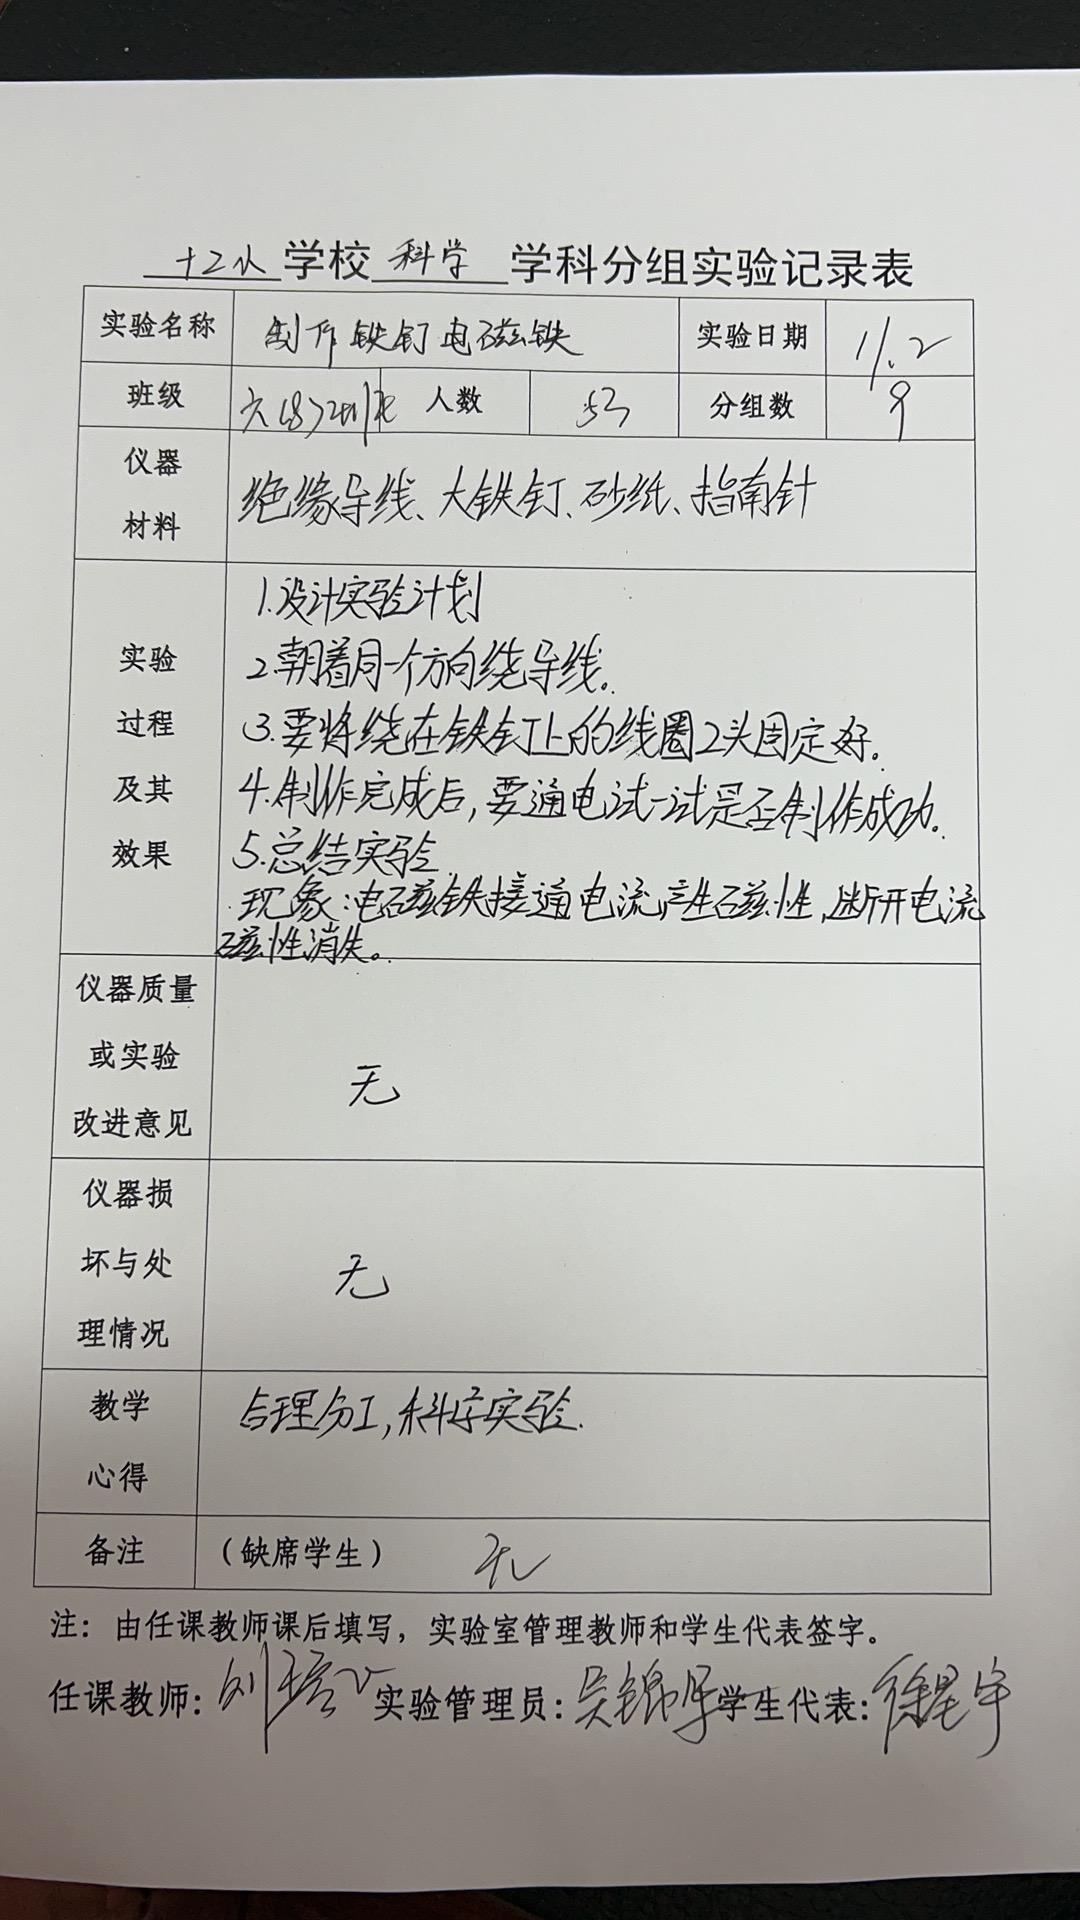 十二小学校科学学科分组实验记录表
实验名称 制作铁钉电磁铁 实验日期 11.2
班级 六(8) 人数 53 分组数 9
仪器
材料
绝缘导线、大铁钉、砂纸、指南针
实验
过程
及其
效果
1.设计实验计划
2.朝着同一个方向绕导线。
3.要将绕在铁钉上的线圈2头固定好。
4.制作完成后,要通电试一试是否制作成功。
5.总结实验
现象:电磁铁接通电流产生磁性,断开电流
磁性消失。
仪器质量
或实验
改进意见
无
仪器损
坏与处
理情况
无
教学
心得
合理分工,科学实验.
备注 (缺席学生) 无
注:由任课教师课后填写,实验室管理教师和学生代表签字。
任课教师: 实验管理员: 学生代表:徐星宇